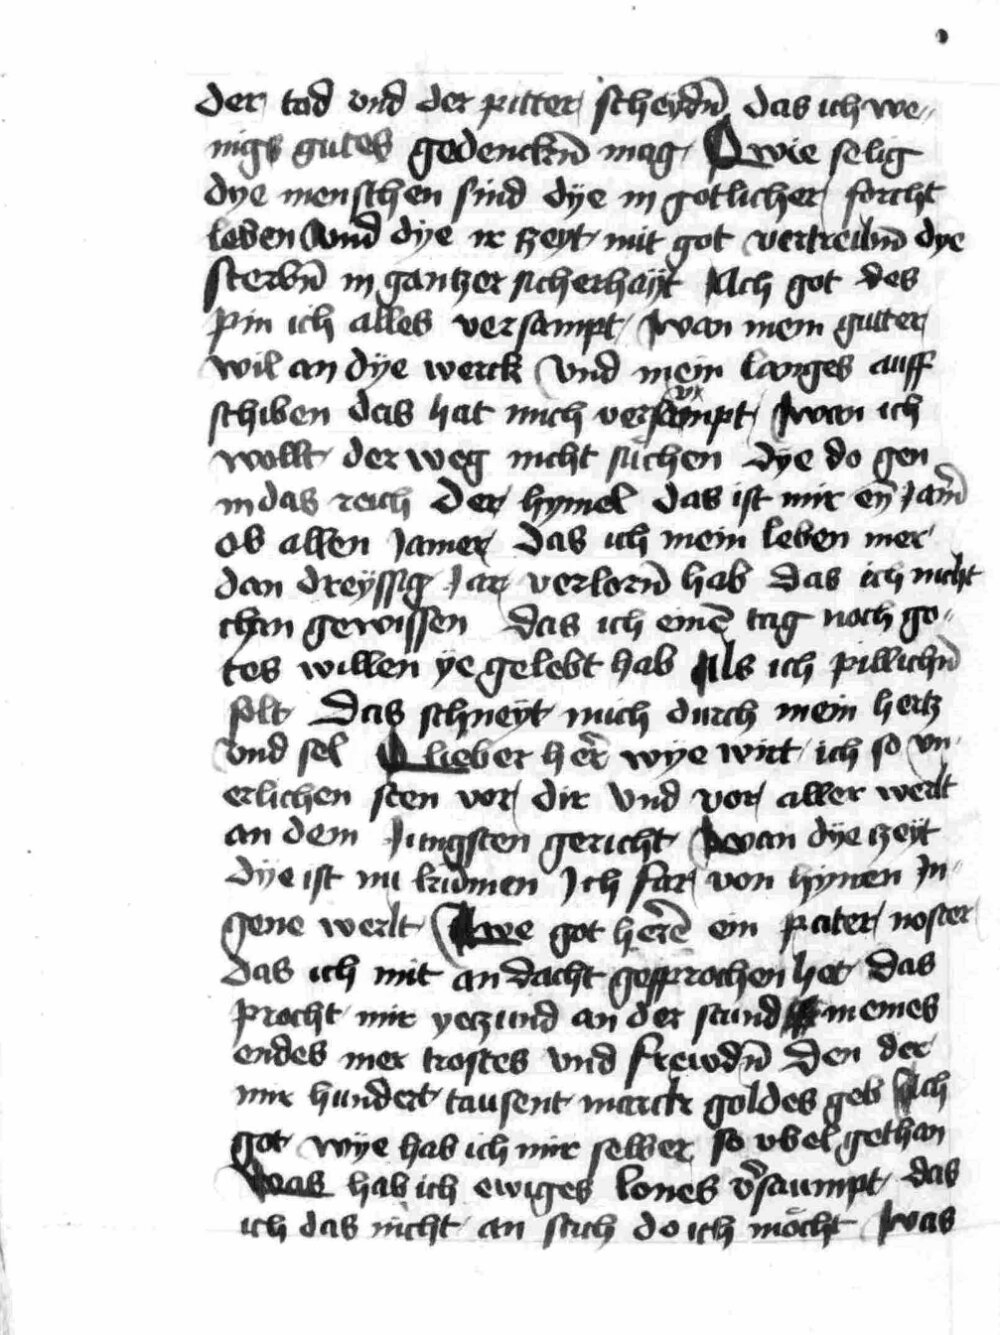 der tod vnd der pitter scheydn̄ das ich we„
nigs gutes gedenckn̄ mag O wie selig
dÿe menschen sind dÿe in gotlicher forcht
leben vnd dÿe ir tzeyt mit got vertreibn̄ dye
sterbn̄ in gantzer sicherhayt Ach got des
pin ich alles versampt wan mein gutter
wil an dÿe werck vnd mein langes auff
schiben das hat mich versampt wan ich
wollt der weg nicht suchen dÿe do gen
in das reich der hymel das ist mir eÿ Jam̄
ob allen Jamer das ich mein leben mer
dan dreyssig Jar verlorn̄ hab das ich nicht
chan gewissen das ich einē tag noch go„
tes willen ÿe gelebt hab Als ich pillichn̄
solt Das schneyt mich durch mein hertz
vnd sel O lieber her̄ wye wirt ich so vn„
erlichen sten vor dir vnd vor aller werlt
an dem Jungsten gericht wan dÿe tzeÿt
dÿe ist nu kumen Ich far von hÿnen In„
gene werlt Awe got herē ein pater noster
das ich mit andacht gesprochen het das
precht mir yetzund an der stund meines
endes mer trostes vnd frewdn̄ Den der
mir hundert tausent marck goldes geb Ach
got wÿe hab ich mir selber so vbel gethan
Was hab ich ewiges lones v̄saumpt das
ich das nicht an sach do ich möcht was